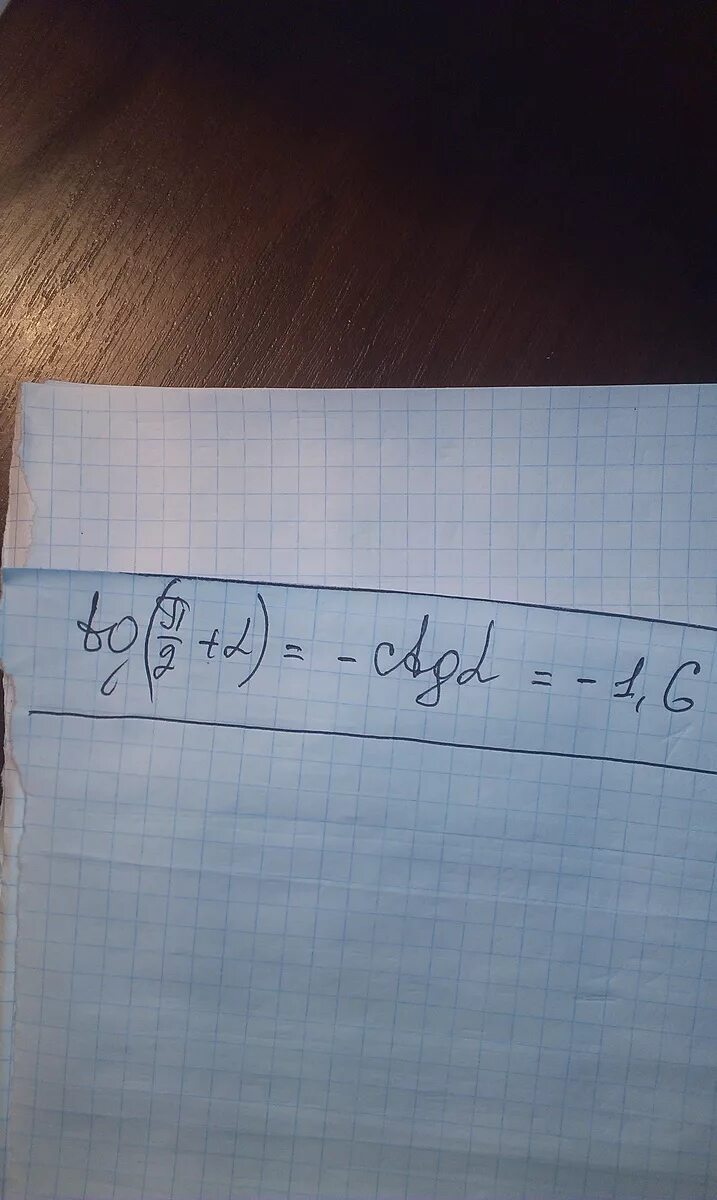 tg(π/2 + α) = - ctgα = - 1,6